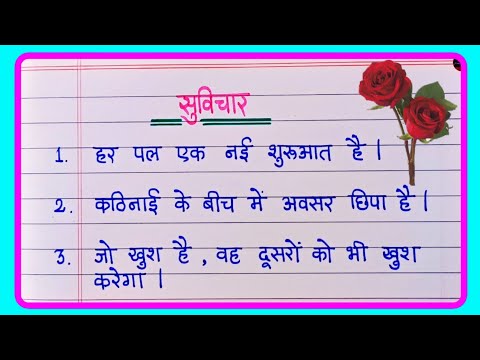 सुविचार
1. हर पल एक नई शुरूआत है |
2. कठिनाई के बीच में अवसर छिपा है |
3. जो खुश है , वह दूसरों को भी खुश
करेगा |